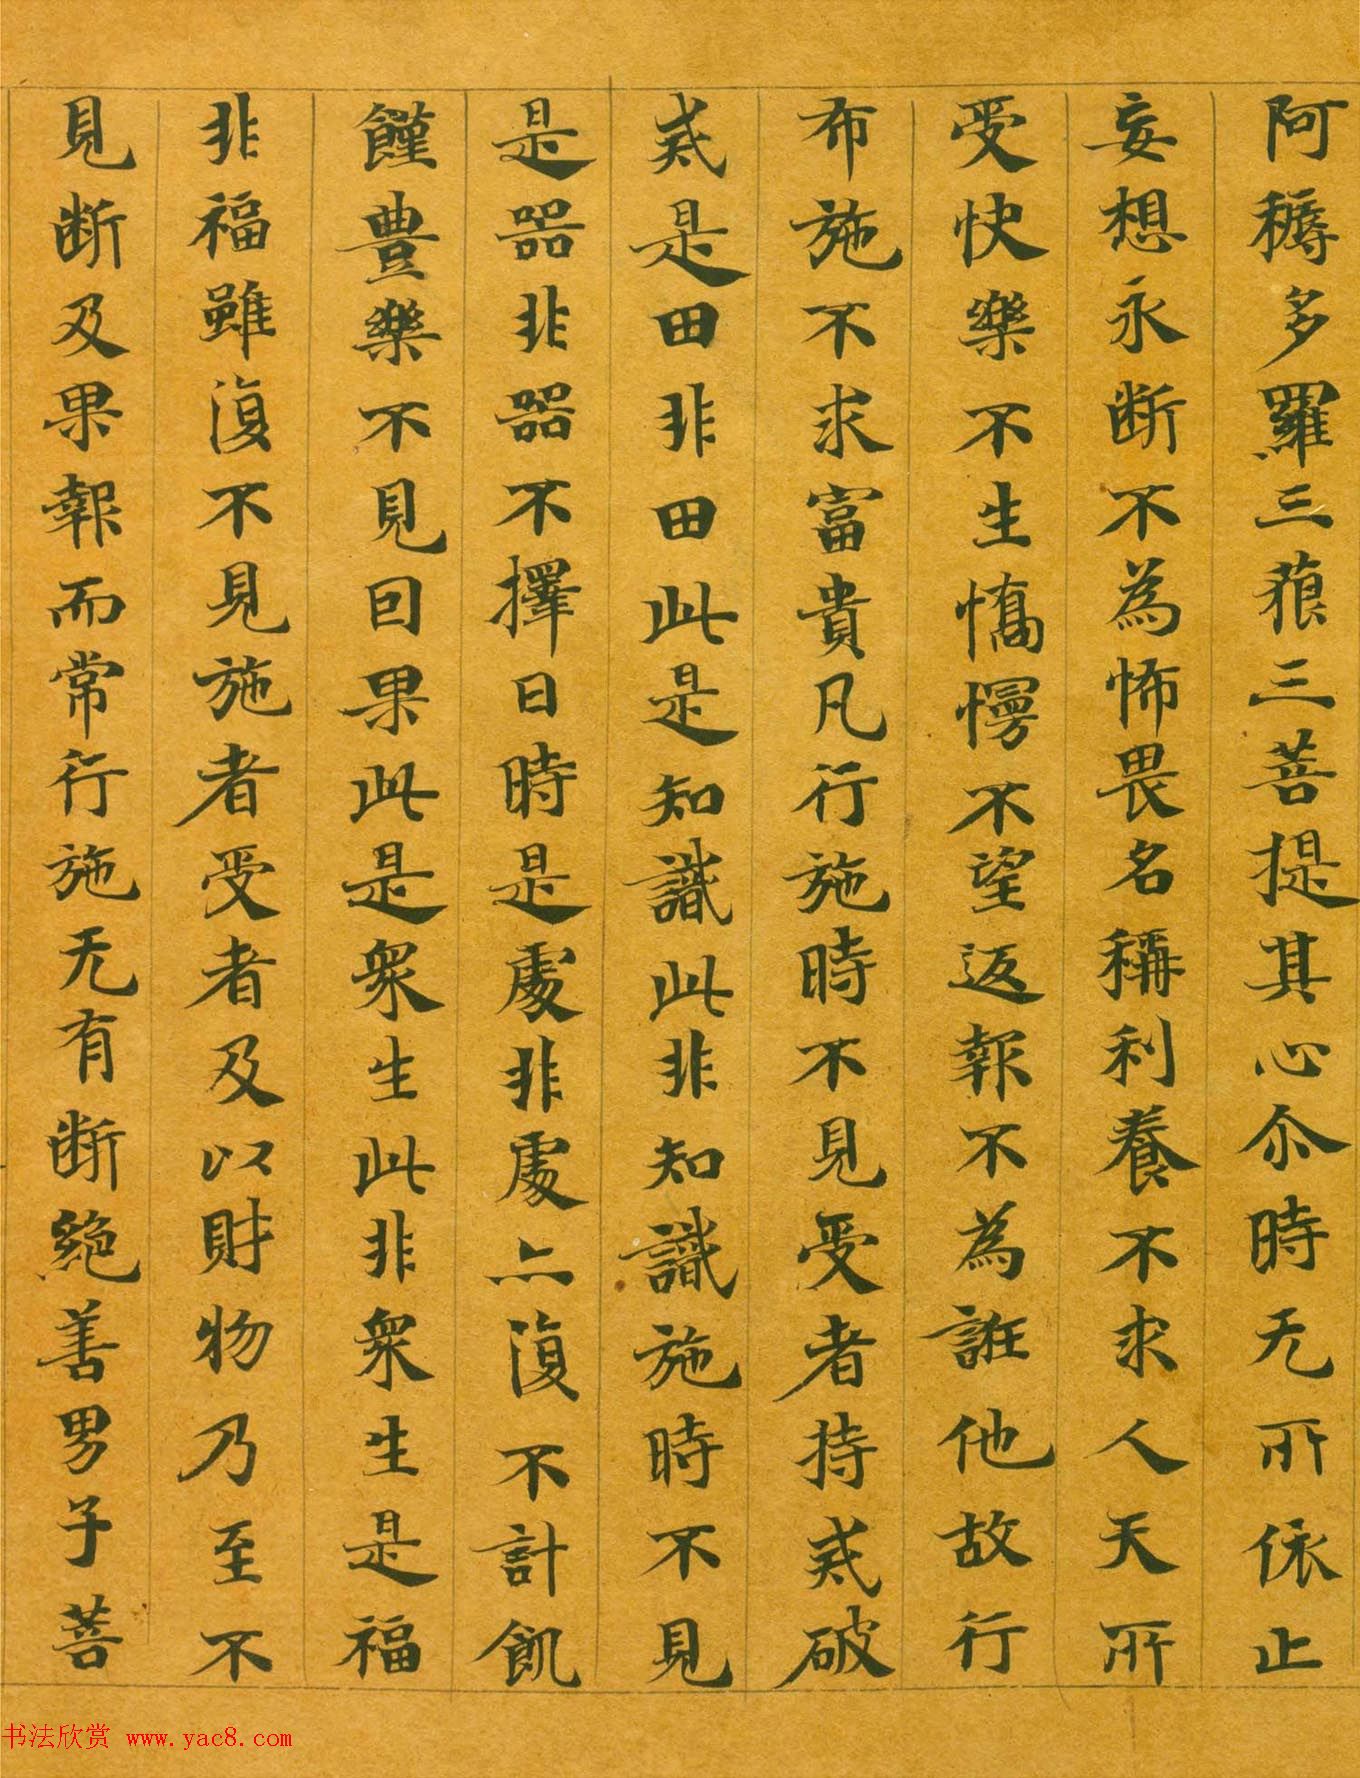 阿耨多羅三藐三菩提其心尒時无所依止
妄想永断不為怖畏名稱利養不求人天所
受快樂不生憍慢不望返報不為誑他故行
布施不求富貴凡行施時不見受者持戒破
戒是田非田此是知識此非知識施時不見
是器非器不擇日時是處非處亦復不計飢
饉豊樂不見因果此是衆生此非衆生是福
非福雖復不見施者受者及以財物乃至不
見断及果報而常行施无有断絶善男子菩
书法欣赏 www.yac8.com